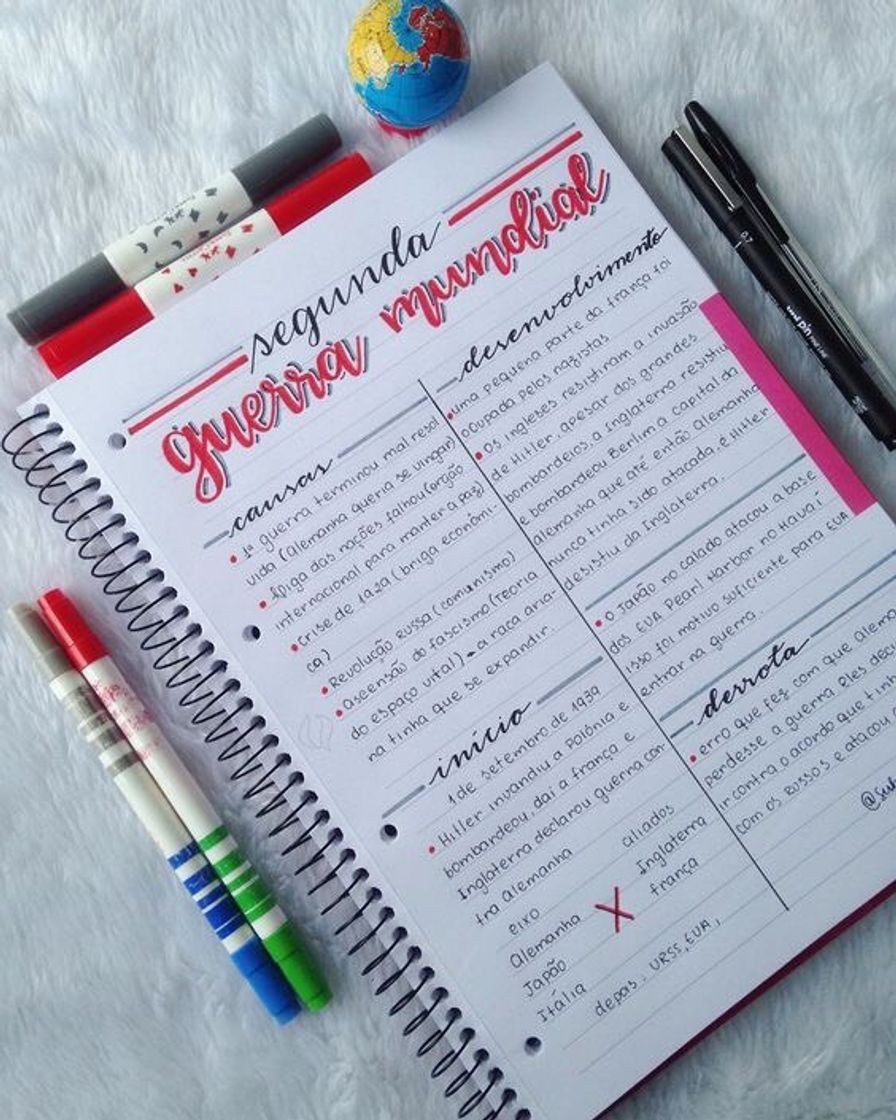 segunda
guerra mundial
causas
• 1ª guerra terminou mal resol
vida (Alemanha queria se vingar)
• Aliga das nações falhou (orgão
internacional para manter a paz)
• Crise de 1929 (briga econômi-
ca)
• Revolução Russa (comunismo)
• Ascensão do fascismo (Teoria
do espaço vital) → a raça aria-
na tinha que se expandir.
início
1 de setembro de 1939
• Hitler invandiu a Polônia e
bombardeou, daí a frança e
Inglaterra declarou guerra con-
tra Alemanha
eixo X aliados
Alemanha Inglaterra
Japão frança
Itália
depois: URSS, EUA,
desenvolvimento
• uma pequena parte da frança foi
ocupada pelos nazistas
• Os ingleses resistiram a invasão
de Hitler, apesar dos grandes
bombardeios, a Inglaterra resistiu
e bombardeou Berlim a capital da
Alemanha que até então Alemanha
nunca tinha sido atacada, e Hitler
desistiu da Inglaterra.
• O Japão no calado atacou a base
dos EUA Pearl Harbor no Havaí
isso foi motivo suficiente para EUA
entrar na guerra.
derrota
• erro que fez com que Alem
perdesse a guerra Eles deci
ir contra o acordo que tin
com os Russos e atacou
0.7
pin